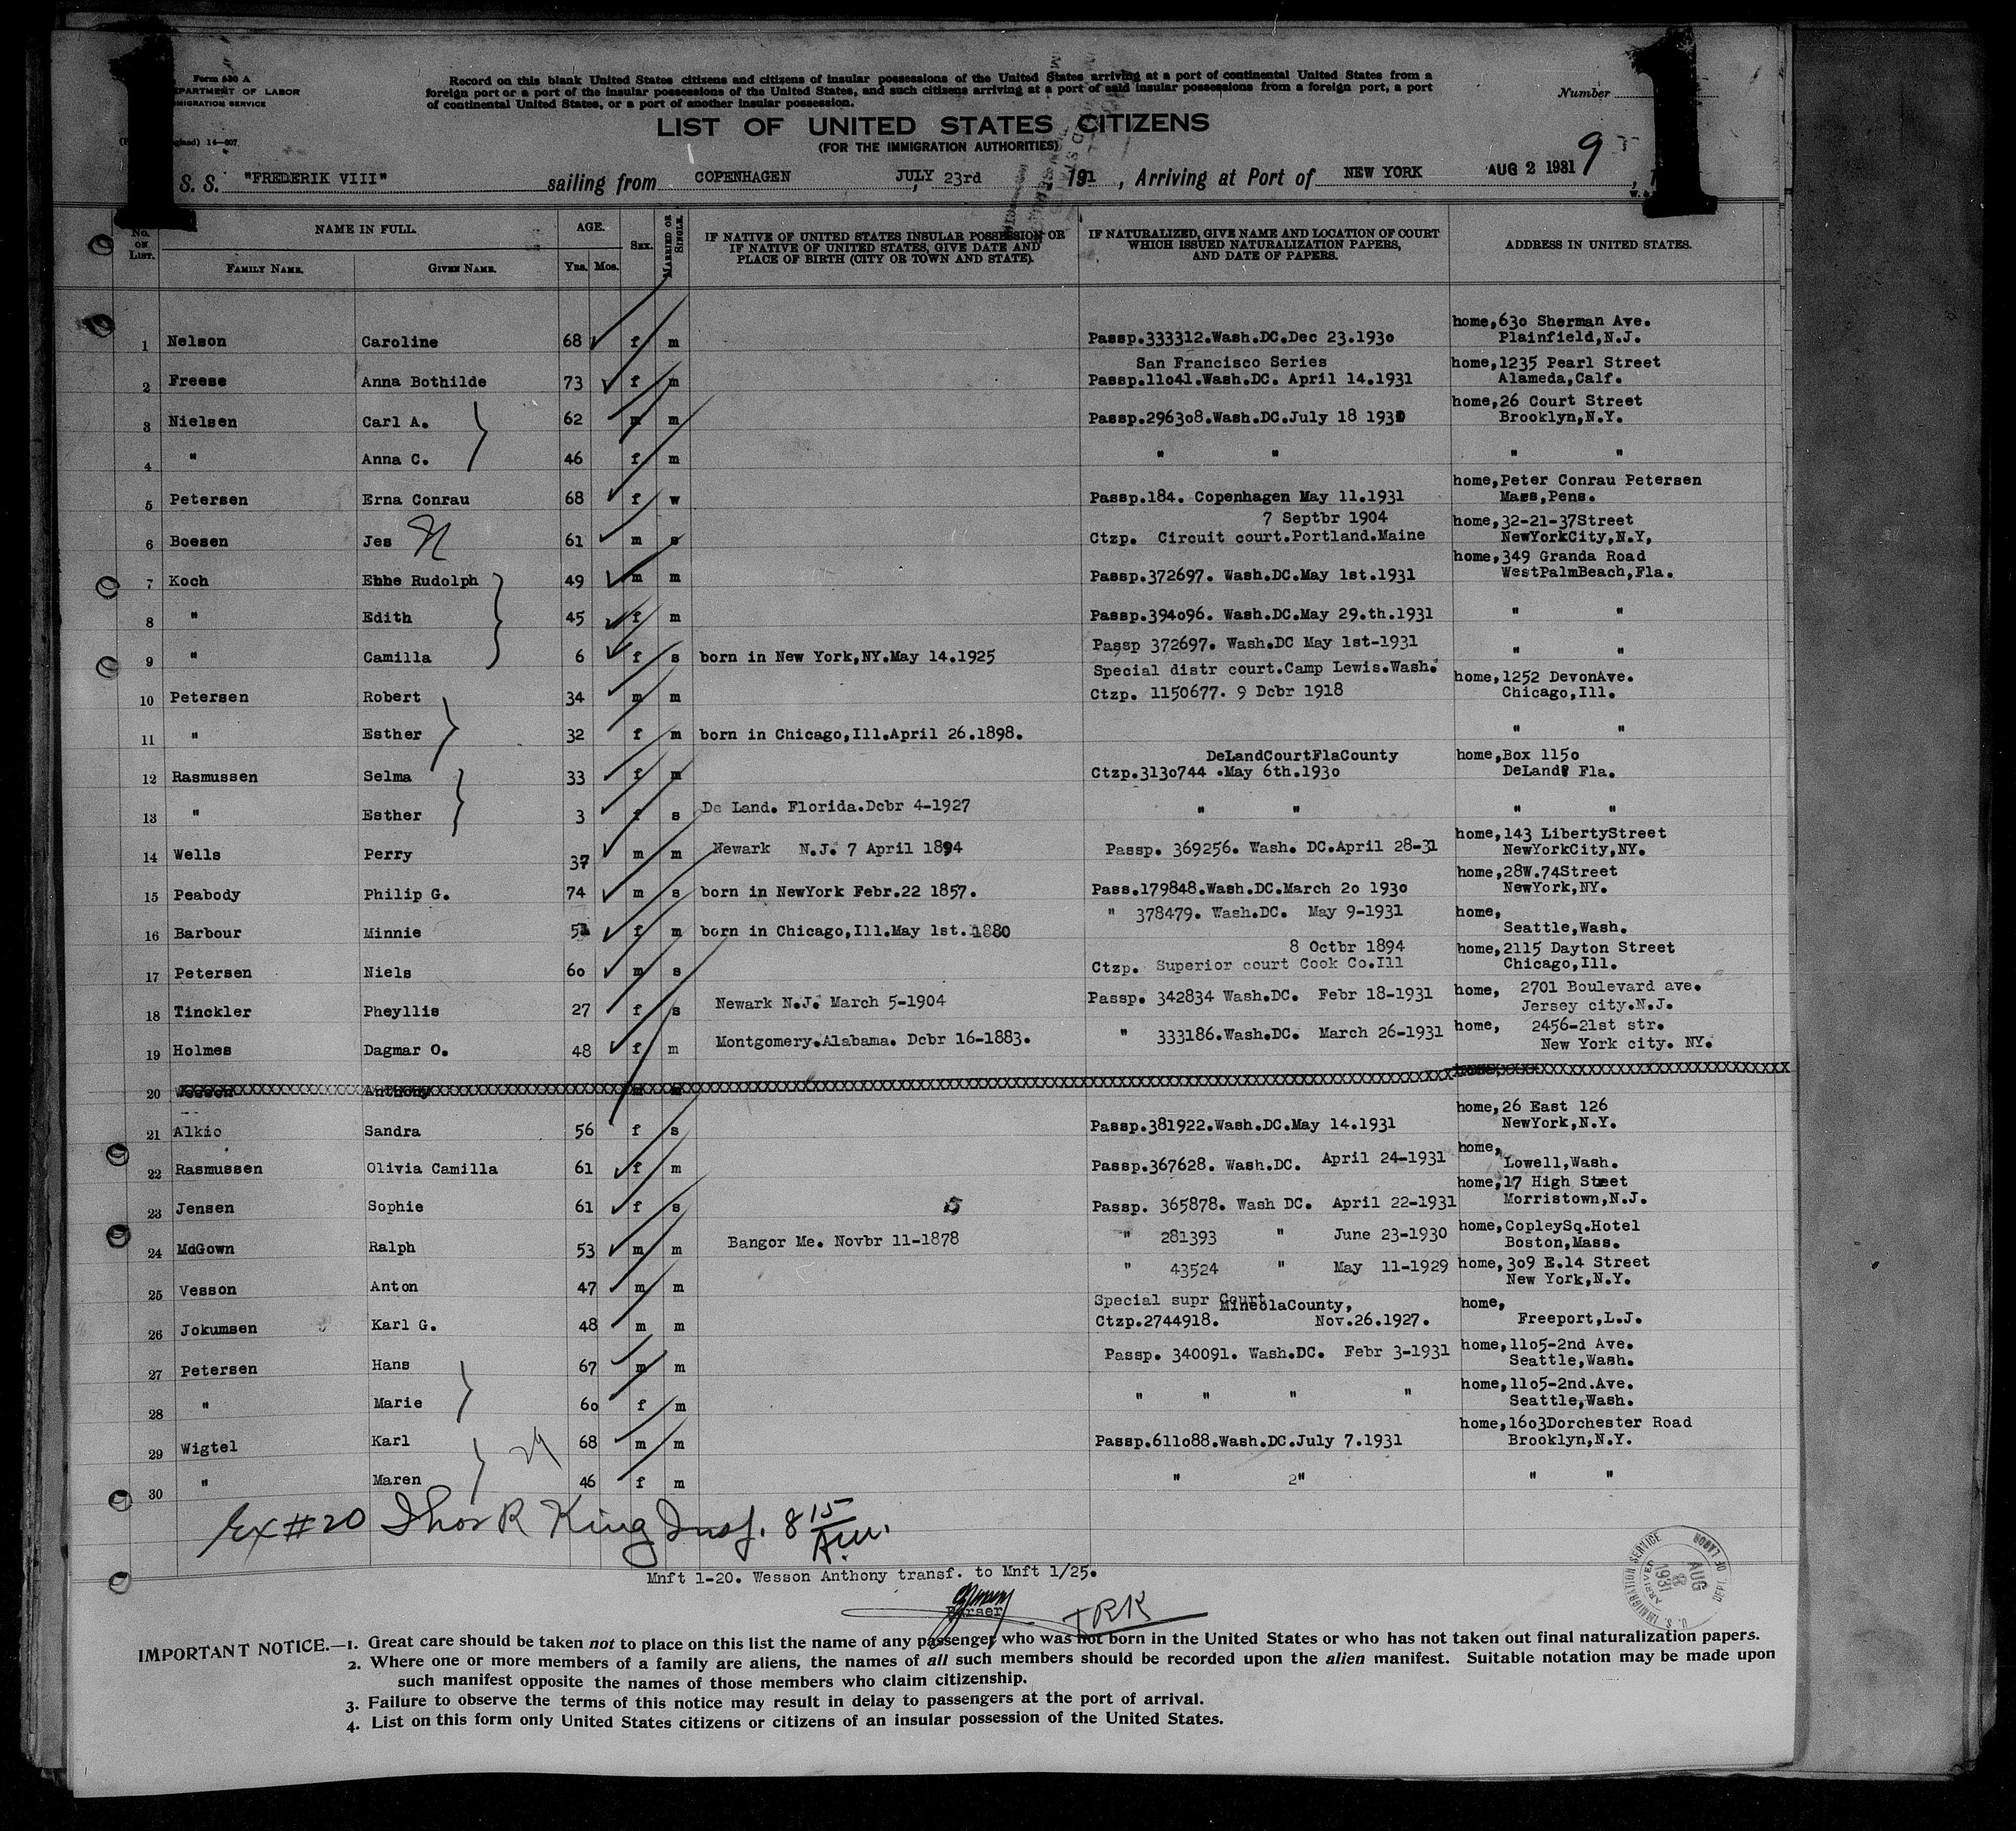 1 1
Form 630 A
DEPARTMENT OF LABOR
IMMIGRATION SERVICE
14—607
Record on this blank United States citizens and citizens of insular possessions of the United States arriving at a port of continental United States from a
foreign port or a port of the insular possessions of the United States, and such citizens arriving at a port of said insular possessions from a foreign port, a port
of continental United States, or a port of another insular possession.
Number
LIST OF UNITED STATES CITIZENS
(FOR THE IMMIGRATION AUTHORITIES)
S. S. "FREDERIK VIII" sailing from COPENHAGEN, JULY 23rd, 1931, Arriving at Port of NEW YORK AUG 2 1931 9
No. ON LIST. NAME IN FULL. AGE. SEX. MARRIED OR SINGLE. IF NATIVE OF UNITED STATES INSULAR POSSESSION OR IF NATIVE OF UNITED STATES, GIVE DATE AND PLACE OF BIRTH (CITY OR TOWN AND STATE). IF NATURALIZED, GIVE NAME AND LOCATION OF COURT WHICH ISSUED NATURALIZATION PAPERS, AND DATE OF PAPERS. ADDRESS IN UNITED STATES.
FAMILY NAME. GIVEN NAME. YRS. MOS.
home,630 Sherman Ave.
1 Nelson Caroline 68 f m Passp.333312.Wash.DC.Dec 23.1930 Plainfield,N.J.
San Francisco Series home,1235 Pearl Street
2 Freese Anna Bothilde 73 f m Passp.11041.Wash.DC. April 14.1931 Alameda,Calf.
home,26 Court Street
3 Nielsen Carl A. 62 m m Passp.296308.Wash.DC.July 18 193 Brooklyn,N.Y.
4 " Anna C. 46 f m " " " "
home,Peter Conrau Petersen
5 Petersen Erna Conrau 68 f w Passp.184. Copenhagen May 11.1931 Mars,Pens.
7 Septbr 1904 home,32-21-37Street
6 Boesen Jes 61 m s Ctzp. Circuit court.Portland.Maine NewYorkCity,N.Y,
home,349 Granda Road
7 Koch Ebbe Rudolph 49 m m Passp.372697. Wash.DC.May 1st.1931 WestPalmBeach,Fla.
8 " Edith 45 f m Passp.394096. Wash.DC.May 29.th.1931 " "
Passp 372697. Wash.DC May 1st-1931
9 " Camilla 6 f s born in New York,NY.May 14.1925 " "
Special distr court.Camp Lewis.Wash. home,1252 DevonAve.
10 Petersen Robert 34 m m Ctzp. 1150677. 9 Dcbr 1918 Chicago,Ill.
11 " Esther 32 f m born in Chicago,Ill.April 26.1898. " "
DeLandCourtFlaCounty home,Box 1150
12 Rasmussen Selma 33 f m Ctzp.3130744 .May 6th.1930 DeLand Fla.
13 " Esther 3 f s De Land. Florida.Dcbr 4-1927 " " " "
home,143 LibertyStreet
14 Wells Perry 37 m m Newark N.J. 7 April 1894 Passp. 369256. Wash. DC.April 28-31 NewYorkCity,NY.
home,28W.74Street
15 Peabody Philip G. 74 m s born in NewYork Febr.22 1857. Pass.179848.Wash.DC.March 20 1930 NewYork,NY.
" 378479. Wash.DC. May 9-1931 home,
16 Barbour Minnie 51 f m born in Chicago,Ill.May 1st.1880 Seattle,Wash.
8 Octbr 1894 home,2115 Dayton Street
17 Petersen Niels 60 m s Ctzp. Superior court Cook Co.Ill Chicago,Ill.
18 Tinckler Pheyllis 27 f s Newark N.J. March 5-1904 Passp. 342834 Wash.DC. Febr 18-1931 home, 2701 Boulevard ave.
Jersey city.N.J.
19 Holmes Dagmar O. 48 f m Montgomery.Alabama. Dcbr 16-1883. " 333186.Wash.DC. March 26-1931 home, 2456-21st str.
New York city. NY.
20 Wesson Anthony m home,
home,26 East 126
21 Alkio Sandra 56 f s Passp.381922.Wash.DC.May 14.1931 NewYork,N.Y.
home,
22 Rasmussen Olivia Camilla 61 f m Passp.367628. Wash.DC. April 24-1931 Lowell,Wash.
home,17 High Street
23 Jensen Sophie 61 f s 5 Passp. 365878. Wash DC. April 22-1931 Morristown,N.J.
home,CopleySq.Hotel
24 MdGown Ralph 53 m m Bangor Me. Novbr 11-1878 " 281393 " June 23-1930 Boston,Mass.
" 43524 " May 11-1929 home,309 E.14 Street
25 Vesson Anton 47 m m New York,N.Y.
Special supr Court MineolaCounty, home,
26 Jokumsen Karl G. 48 m m Ctzp.2744918. Nov.26.1927. Freeport,L.J.
home,1105-2nd Ave.
27 Petersen Hans 67 m m Passp. 340091. Wash.DC. Febr 3-1931 Seattle,Wash.
home,1105-2nd.Ave.
28 " Marie 60 f m " " " " Seattle,Wash.
home,1603Dorchester Road
29 Wigtel Karl 68 m m Passp.611088.Wash.DC.July 7.1931 Brooklyn,N.Y.
30 " Maren 46 f m " 2" " "
Ex #20 Thos R King Insp. 8 15 A.M.
Mnft 1-20. Wesson Anthony transf. to Mnft 1/25.
Purser TRK
U. S. IMMIGRATION SERVICE DEPT. OF LABOR ARRIVED AUG 1931
IMPORTANT NOTICE.—1. Great care should be taken not to place on this list the name of any passenger who was not born in the United States or who has not taken out final naturalization papers.
2. Where one or more members of a family are aliens, the names of all such members should be recorded upon the alien manifest. Suitable notation may be made upon
such manifest opposite the names of those members who claim citizenship.
3. Failure to observe the terms of this notice may result in delay to passengers at the port of arrival.
4. List on this form only United States citizens or citizens of an insular possession of the United States.